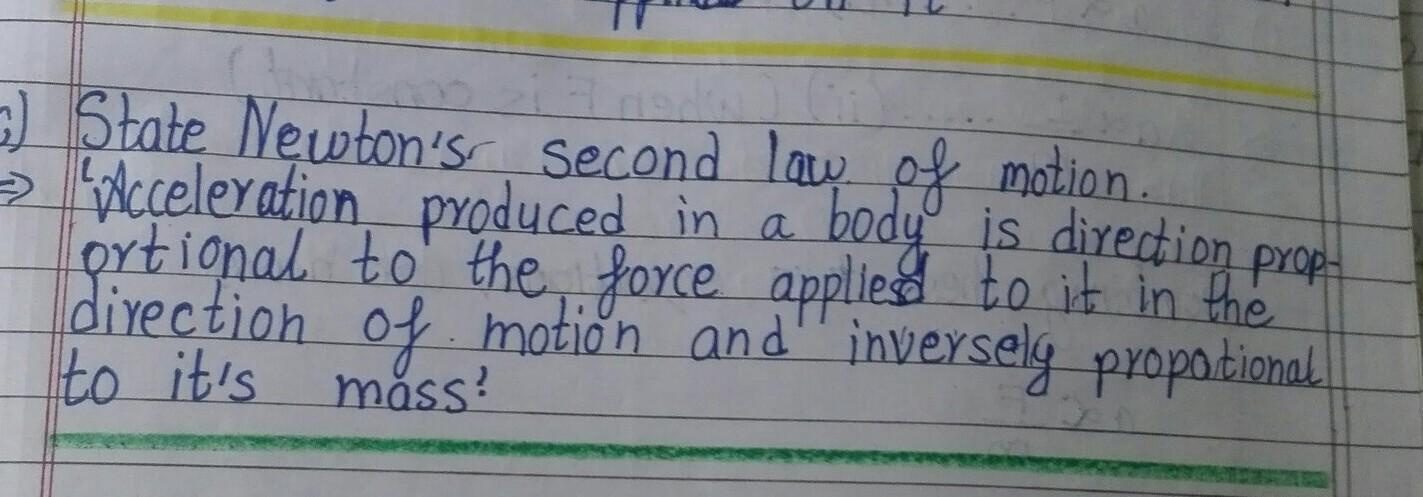 on it
) State Newton's second law of motion.
⇒ "Acceleration produced in a body is direction prop-
ortional to the force applied to it in the
direction of motion and inversely propotional
to it's mass!